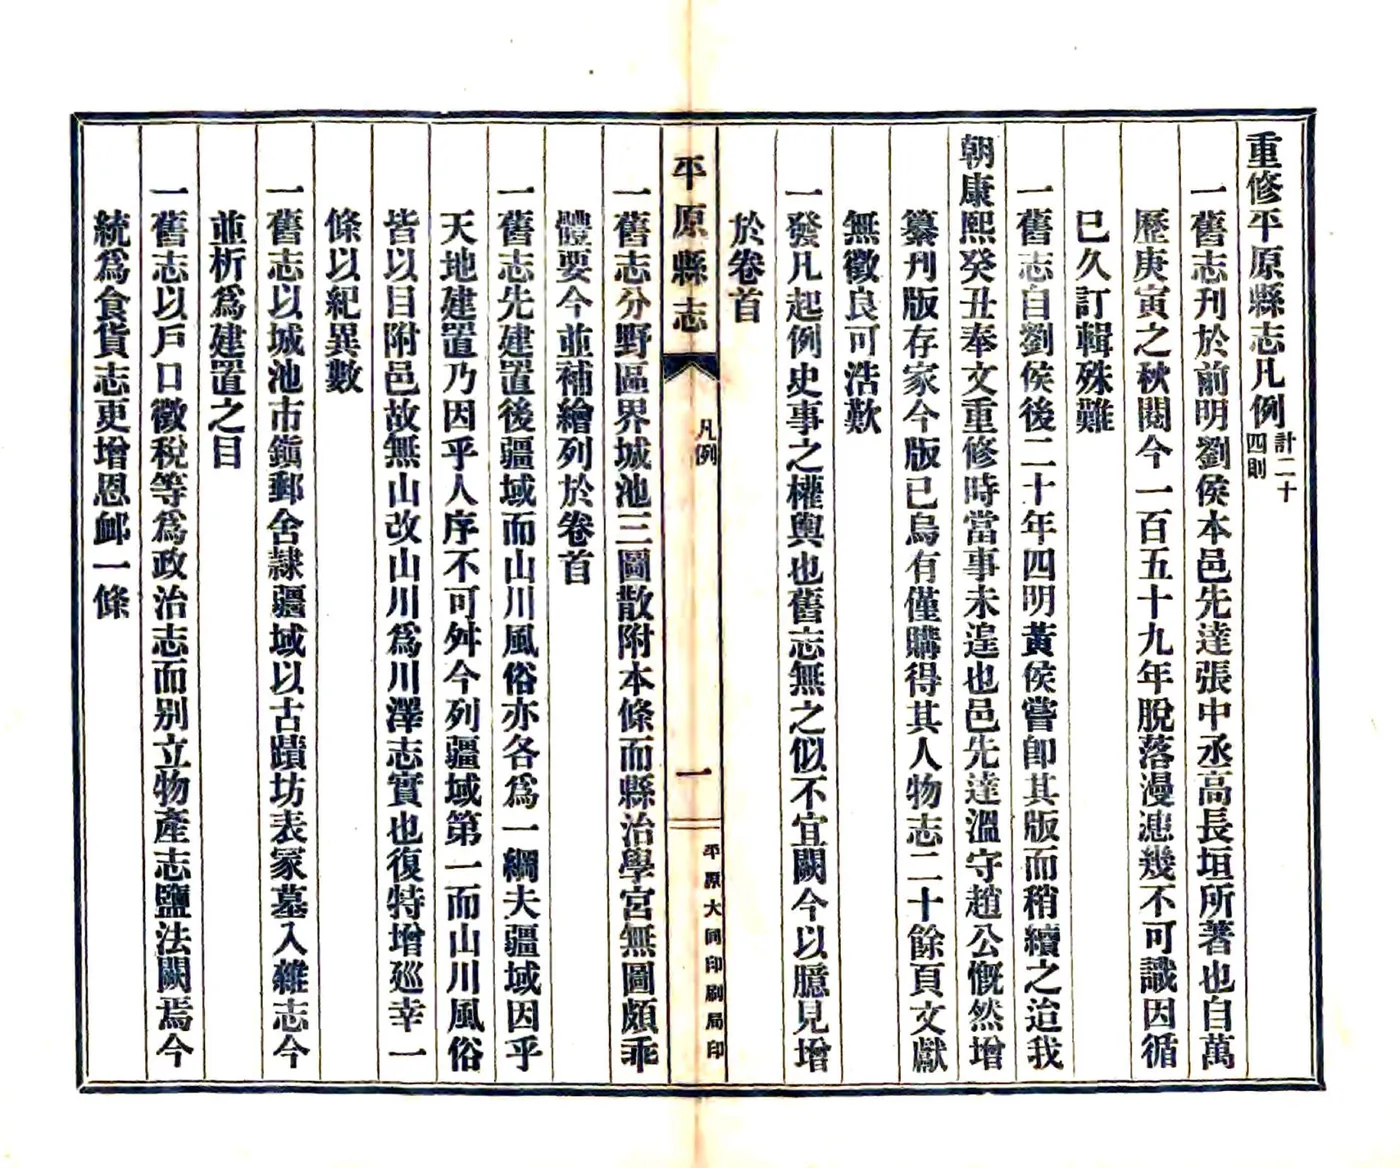 重修平原縣志凡例計二十四則
一舊志刊於前明劉侯本邑先達張中丞高長垣所著也自萬
歷庚寅之秋閱今一百五十九年脫落漫漶幾不可識因循
已久訂輯殊難
一舊志自劉侯後二十年四明黃侯嘗卽其版而稍續之迨我
朝康熙癸丑奉文重修時當事未遑也邑先達溫守趙公慨然增
纂刋版存家今版已烏有僅購得其人物志二十餘頁文獻
無徵良可浩歎
一發凡起例史事之權輿也舊志無之似不宜闕今以臆見增
於卷首
平原縣志
凡例
一
平原大同印刷局印
一舊志分野區界城池三圖散附本條而縣治學宮無圖頗乖
體要今並補繪列於卷首
一舊志先建置後疆域而山川風俗亦各爲一綱夫疆域因乎
天地建置乃因乎人序不可舛今列疆域第一而山川風俗
皆以目附邑故無山改山川爲川澤志實也復特增巡幸一
條以紀異數
一舊志以城池市鎭郵舍隸疆域以古蹟坊表冢墓入雜志今
並析爲建置之目
一舊志以戶口徵稅等爲政治志而别立物產志鹽法闕焉今
統爲食貨志更增恩䘏一條